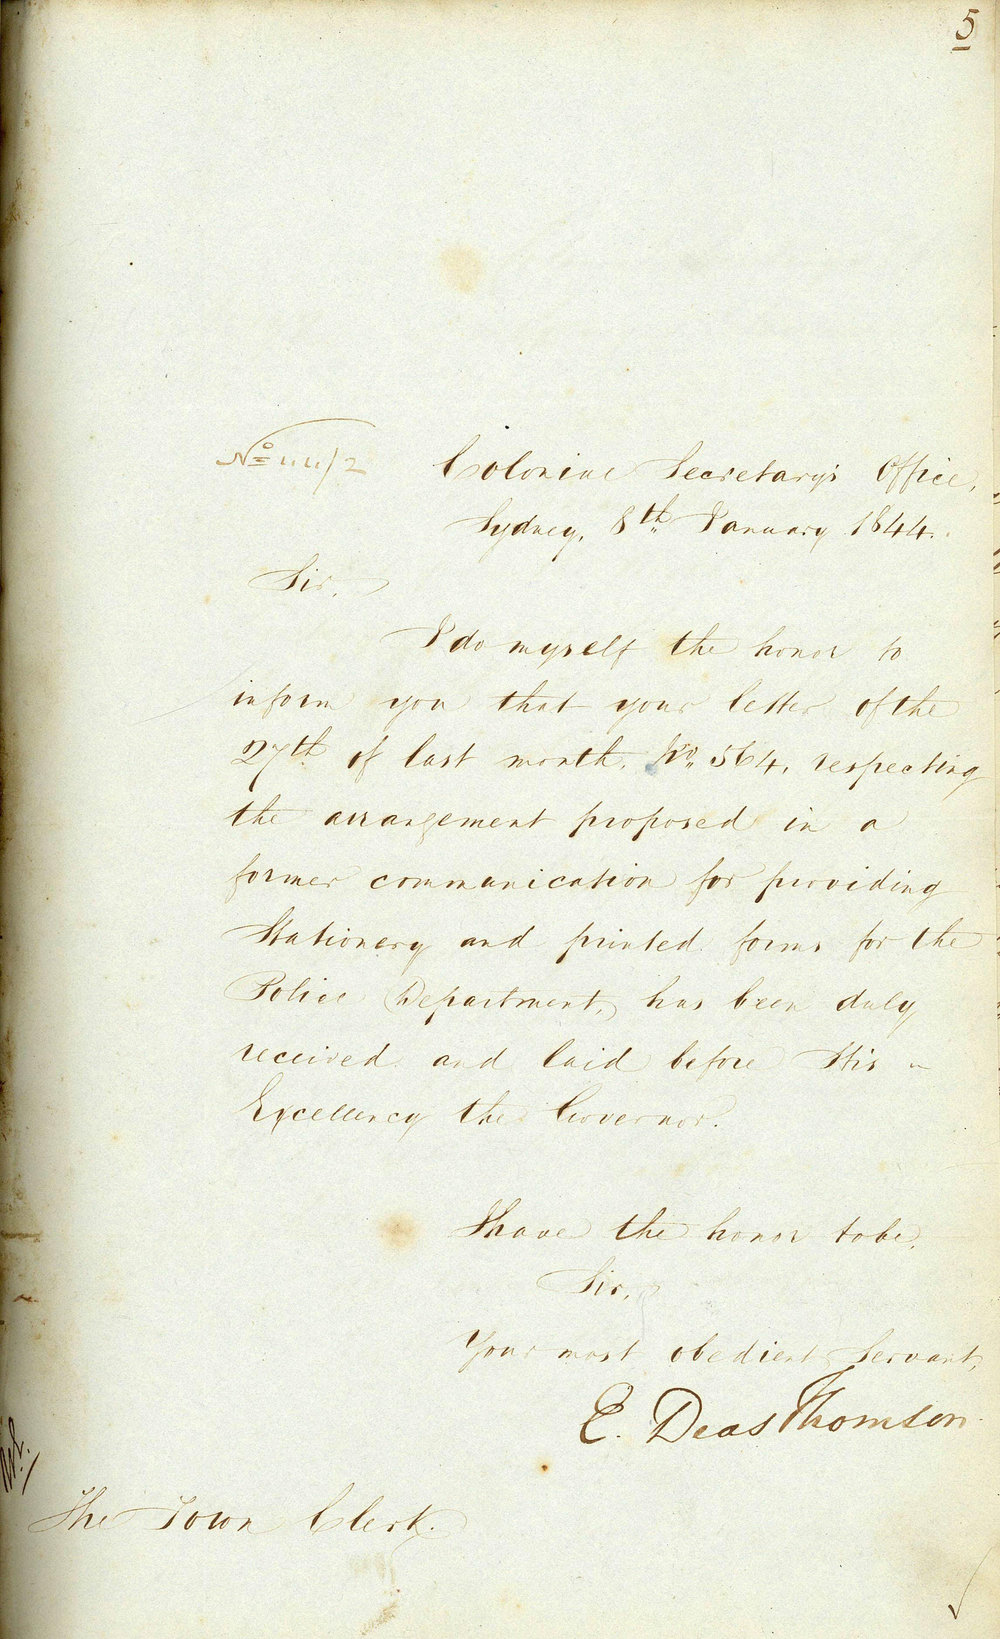 5
No 44/2
Colonial Secretary's Office,
Sydney, 8th January 1844.
Sir,
I do myself the honor to
inform you that your letter of the
27th of last month, No. 564, respecting
the arrangement proposed in a
former communication for providing
Stationery and printed forms for the
Police Department, has been duly
received and laid before His
Excellency the Governor.
I have the honor to be,
Sir,
Your most obedient Servant,
E. Deas Thomson
The Town Clerk.